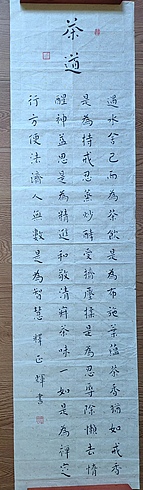 茶道
遇水舍己而為茶飲是為布施葉蘊茶香猶如戒香
是為持戒忍蒸炒酵受擠壓揉是為忍辱除懶去惰
醒神益思是為精進和敬清寂茶味一如是為禪定
行方便法濟人無數是為智慧